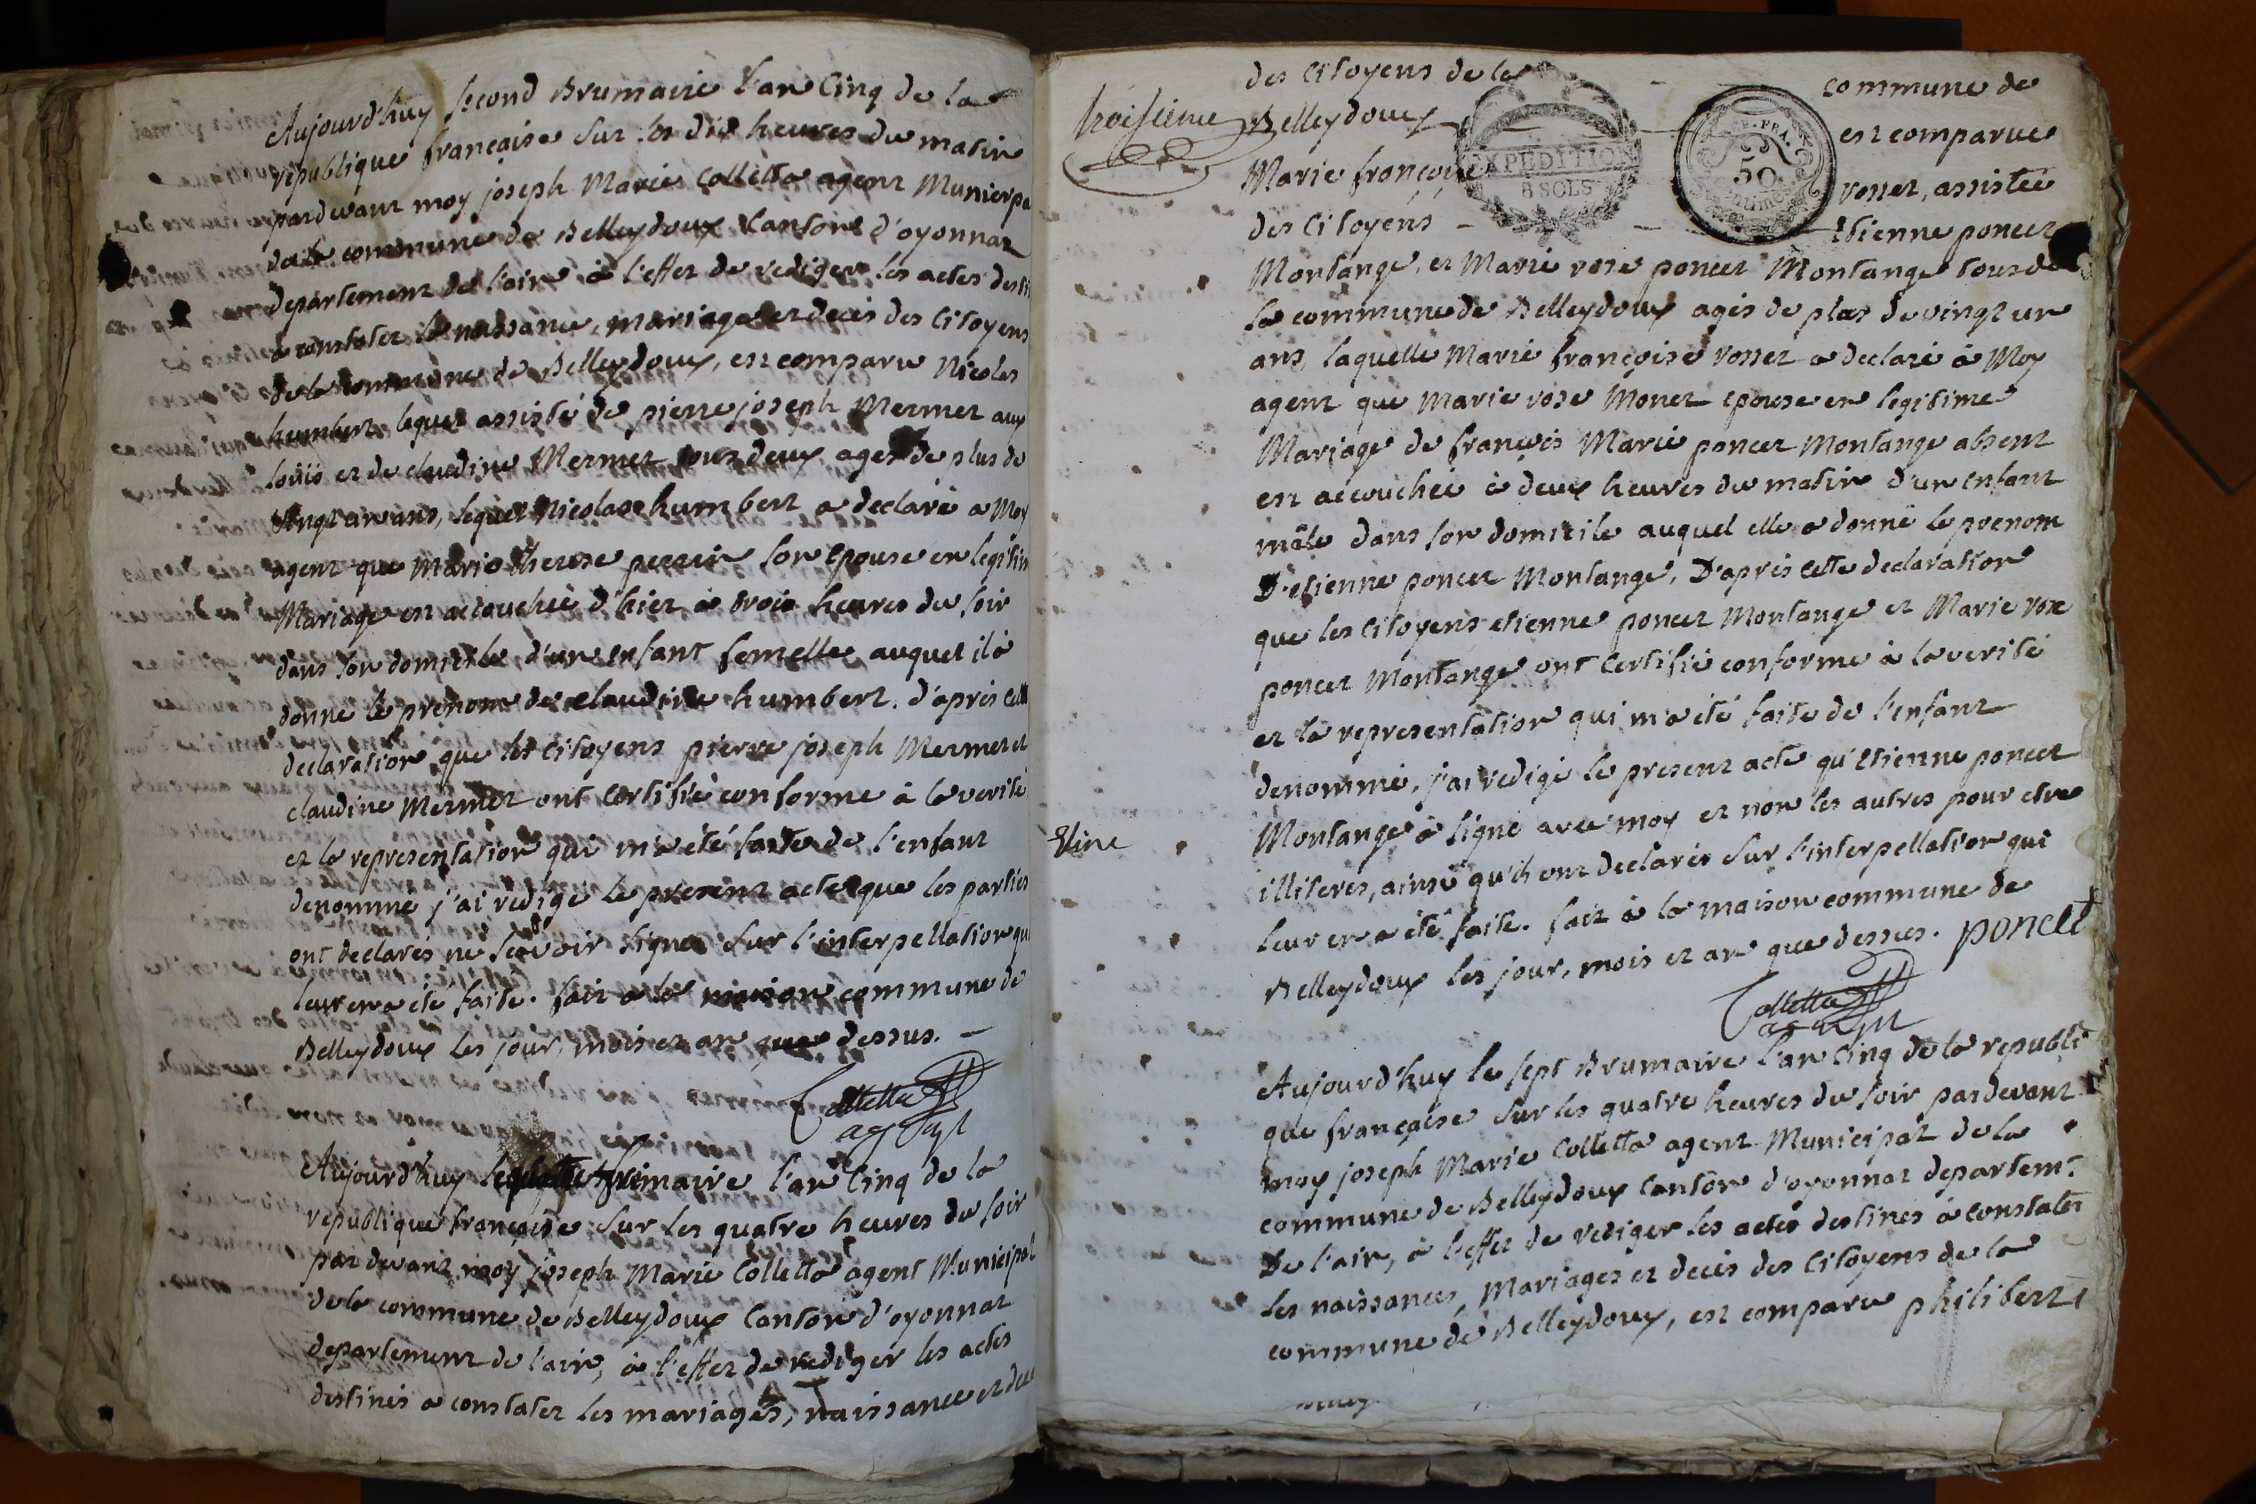 Aujourd'huy second Brumaire l'an Cinq de la
republique française sur les dix heures du matin
pardevant moy joseph Marie Colletta agent Municipa
de la commune de Belleydoux Canton d'oyonnaz
departement de l'ain à l'effet de rediger les actes desti
a constater la naissance, mariage et deces des Citoyens
de la commune de Belleydoux, est comparu Nicolas
humbert lequel assisté de pierre joseph Mermet aux
loüis et de claudine Mermet tous deux ages de plus de
vingt un ans, lequel Nicolas humbert a declaré a Moy
agent que Marie therese perrin son Epouse en legitim
Mariage est accouchée d'hier à trois heures du soir
dans son domicile, d'un enfant femelle auquel il à
donné le prenom de claudine humbert. d'après cette
declaration que les Citoyens pierre joseph Mermet et
claudine Mermet ont Certifié conforme à la verité
et la representation qui m'a été faite de l'enfant
denommé j'ai redigé le present acte que les parties
ont declarés ne scavoir signer sur l'interpellation qui
leur en a été faite. fait a la maison commune de
Belleydoux les jour, mois et an que dessus. —
Colletta
agent
Aujourd'huy le frimaire l'an Cinq de la
republique française sur les quatre heures du soir
par devant moy joseph Marie Colletta agent Municipal
de la commune de Belleydoux Canton d'oyonnaz
departement de l'ain, à l'effet de rediger les actes
destinés a constater les mariages, naissance et dec
troisieme
des Citoyens de la commune de
Belleydoux est comparue
Marie françoise rosset, assistée
des Citoyens - Etienne poncet
EXPEDITION
8 SOLS
REP. FRA.
50
Centimes
Montange, et Marie rose poncet Montange tous de
la commune de Belleydoux agés de plus de vingt un
ans, laquelle Marie françoise rosset a declaré à Moy
agent que Marie rose Monet epouse en legitime
Mariage de françois Marie poncet Montange absent
est accouchée à deux heures du matin d'un enfant
mâle dans son domicile auquel elle a donné le prenom
D'etienne poncet Montange, D'après cette declaration
que les Citoyens etienne poncet Montange et Marie rose
poncet Montange ont Certifié conforme à la verité
et la representation qui m'a été faite de l'enfant
denommé, j'ai redigé le present acte qu'Etienne poncet
Montange à signé avec moy et non les autres pour etre
illiteres, ainsi qu'ils ont declarés sur l'interpellation qui
leur en a été faite. fait à la maison commune de
Belleydoux les jour, mois et an que dessus. poncet
Colletta
agent
Aujourd'huy le sept Brumaire l'an Cinq de la republi
que française sur les quatre heures du soir pardevant
moy joseph Marie Colletta agent Municipal de la
commune de Belleydoux Canton d'oyonnaz departemt.
De l'ain, à l'effet de rediger les actes destinés à constater
les naissances, Mariages et decès des Citoyens de la
commune de Belleydoux, est comparu philibert